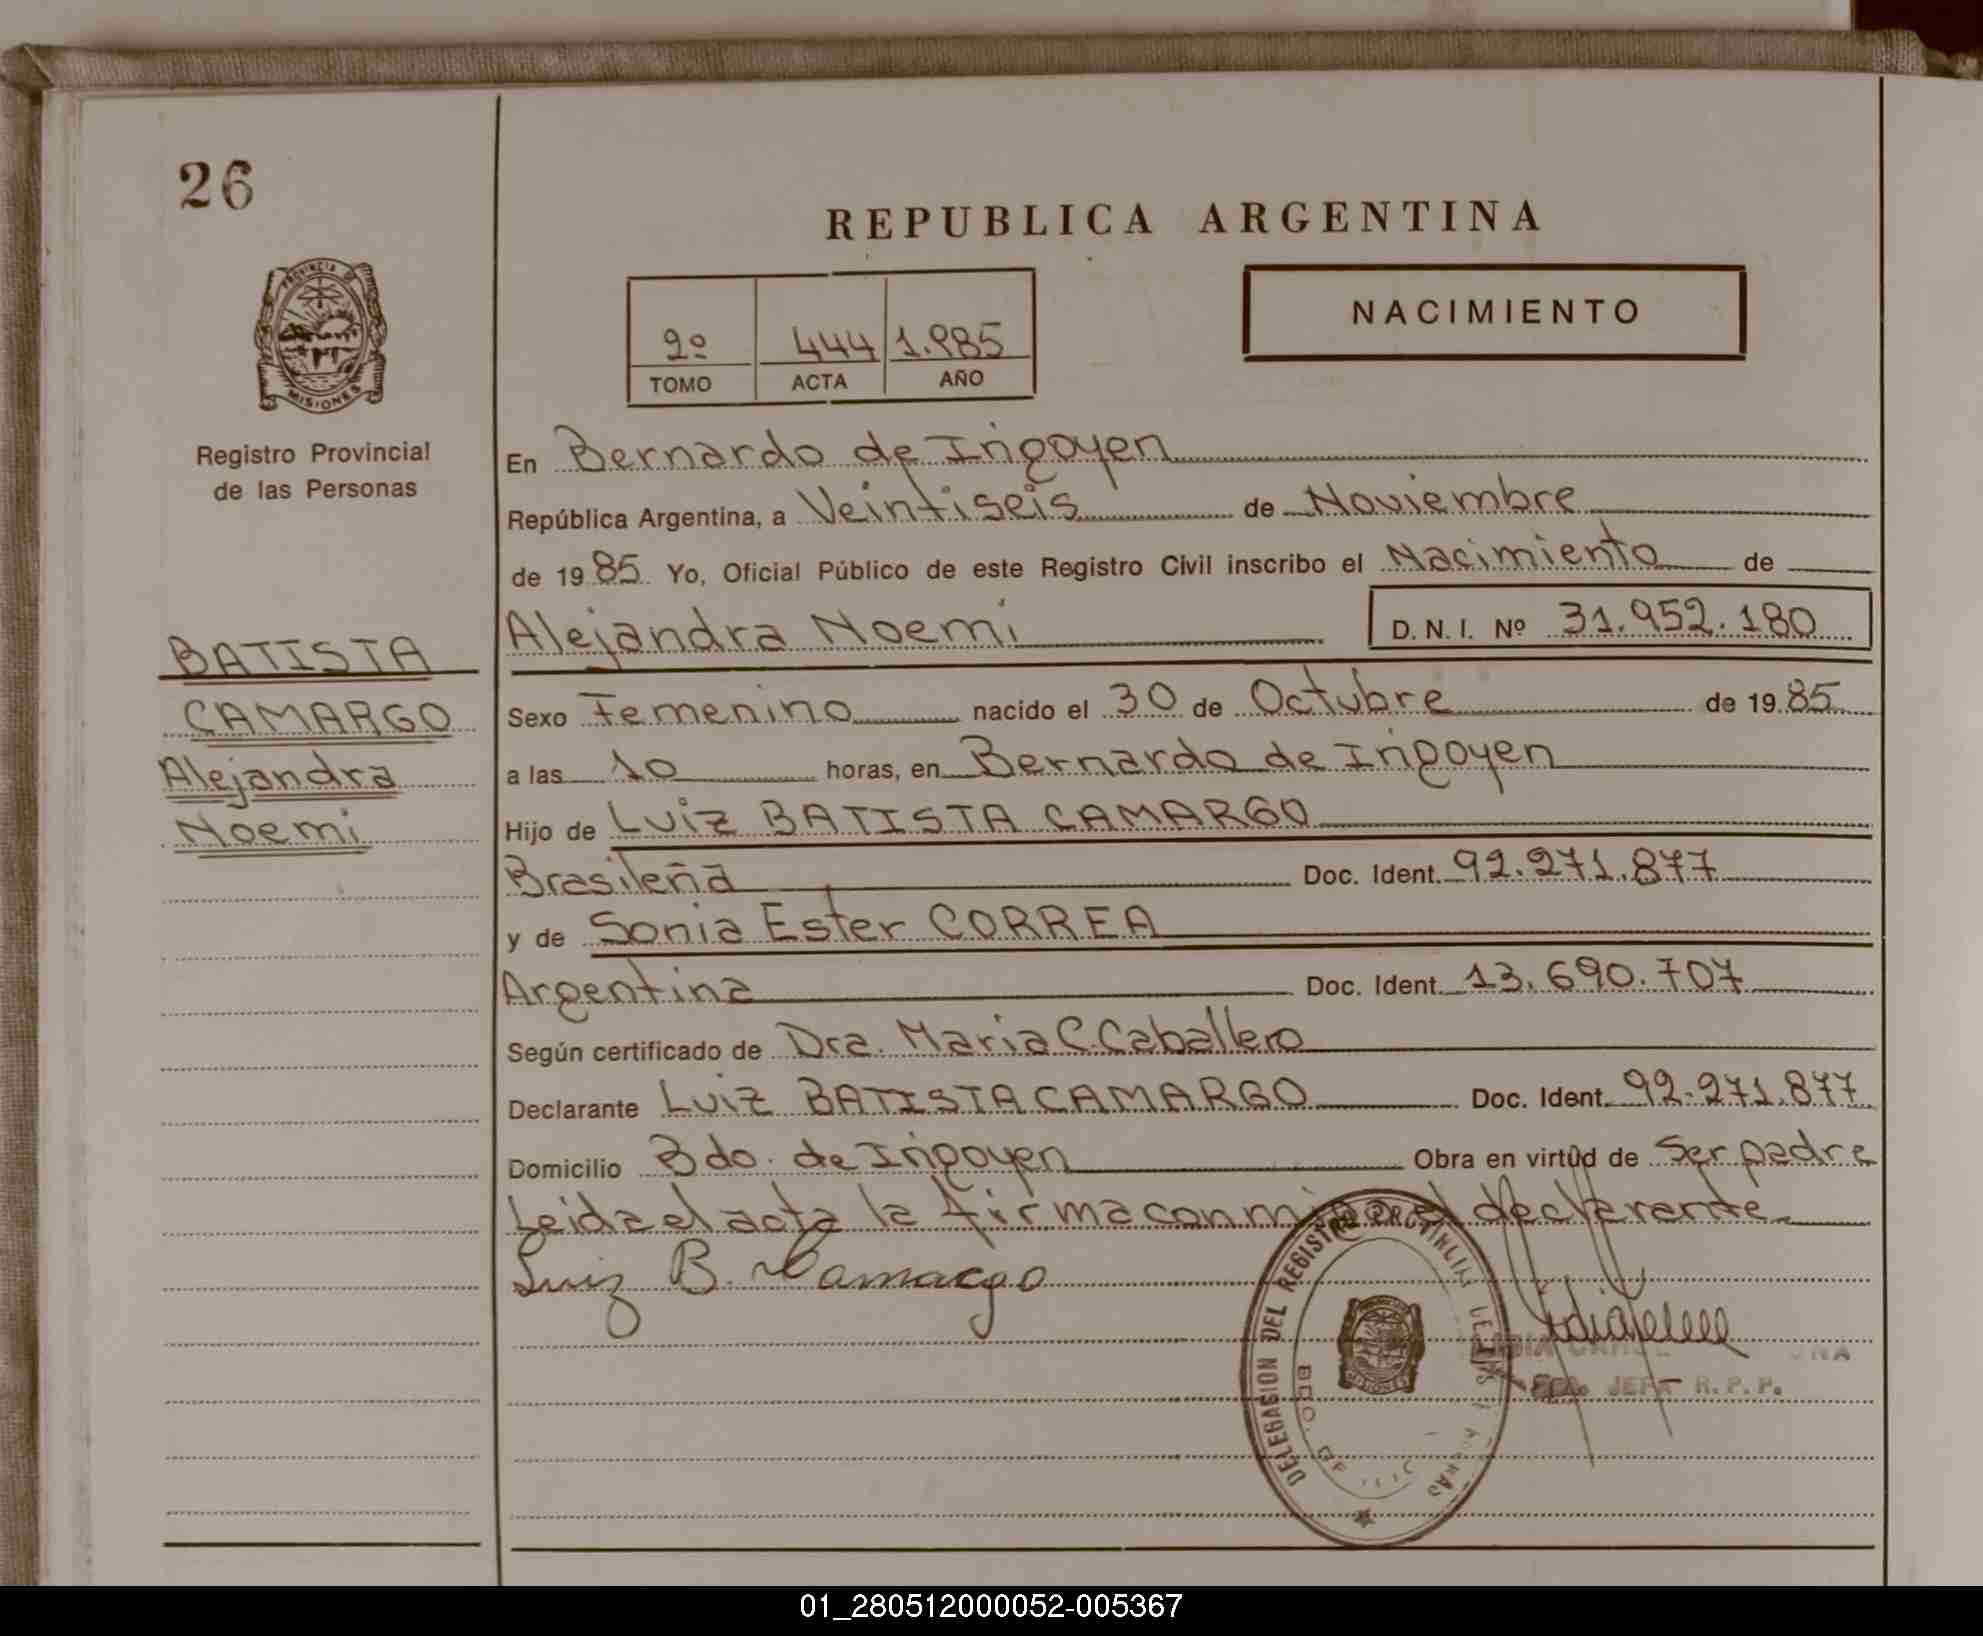 26
REPUBLICA ARGENTINA
PROVINCIA DE
MISIONES
2º 444 1.985
TOMO ACTA AÑO
NACIMIENTO
Registro Provincial
de las Personas
BATISTA
CAMARGO
Alejandra
Noemi
En Bernardo de Irigoyen
República Argentina, a Veintiseis de Noviembre
de 1985 Yo, Oficial Público de este Registro Civil inscribo el Nacimiento de
Alejandra Noemi D.N.I. Nº 31.952.180
Sexo Femenino nacido el 30 de Octubre de 1985
a las 10 horas, en Bernardo de Irigoyen
Hijo de Luiz BATISTA CAMARGO
Brasileña Doc. Ident. 92.271.877
y de Sonia Ester CORREA
Argentina Doc. Ident. 13.690.707
Según certificado de Dra. Maria C. Caballero
Declarante Luiz BATISTA CAMARGO Doc. Ident. 92.271.877
Domicilio Bdo. de Irigoyen Obra en virtud de Ser padre
Leida el acta la firma con migo el declarante
Luiz B. Camargo
DELEGACION DEL REGISTRO PROVINCIAL DE LAS PERSONAS
BDO. DE
MISIONES
JEFA R.P.P.
01_280512000052-005367